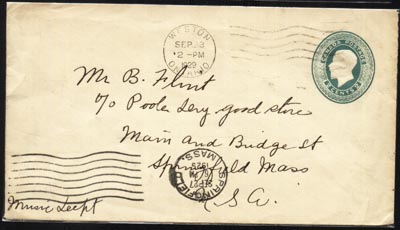 WESTON
SEP 23
2-PM
1929
ONTARIO
CANADA POSTAGE
2 CENTS 2
Mr B. Flint
c/o Poole Dry good store
Main and Bridge St
Springfield Mass
SPRINGFIELD
MASS.
Music Dept